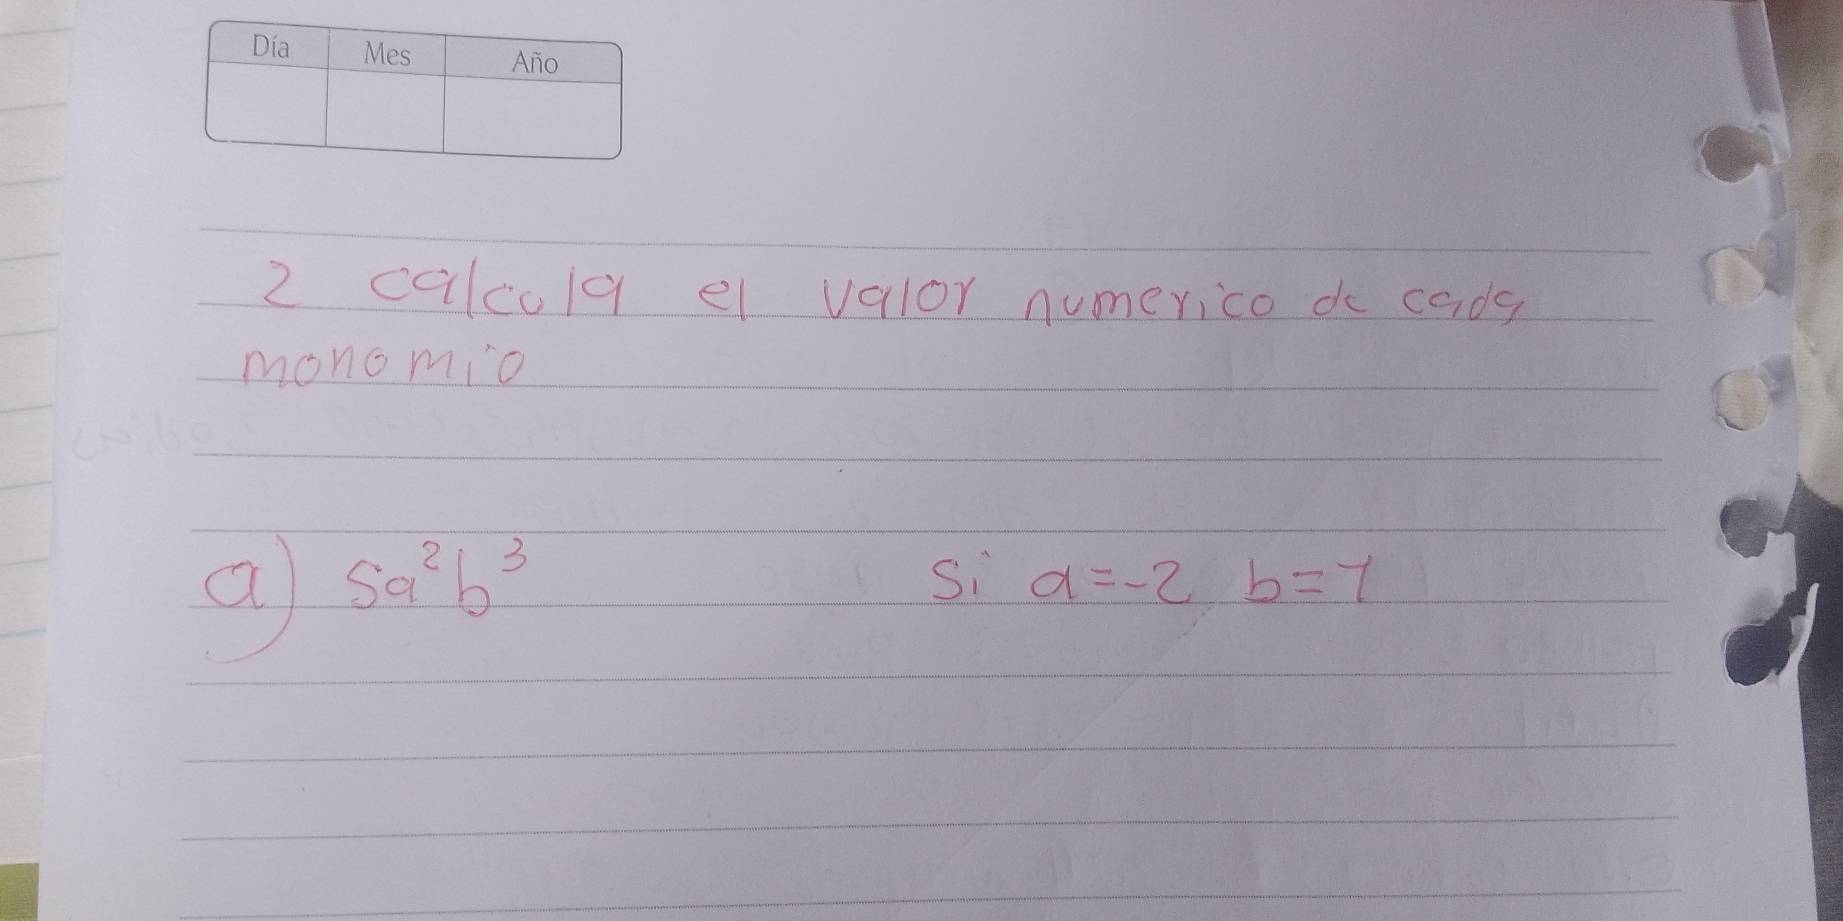 Día Mes Año
2 calcula el valor numerico de cada
monomio
a) 5a²b³ si a=-2 b=7